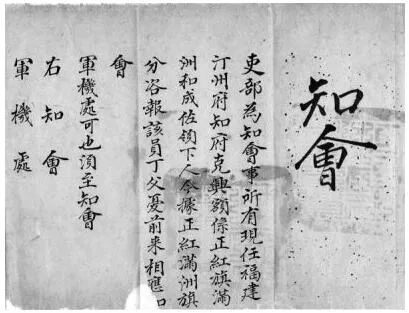 知會
吏部為知會事所有現任福建
汀州府知府克興額係正紅旗滿
洲和成佐領下人今據正紅滿洲旗
分咨報該員丁父憂前來相應知
會
軍機處可也須至知會
右知會
軍機處